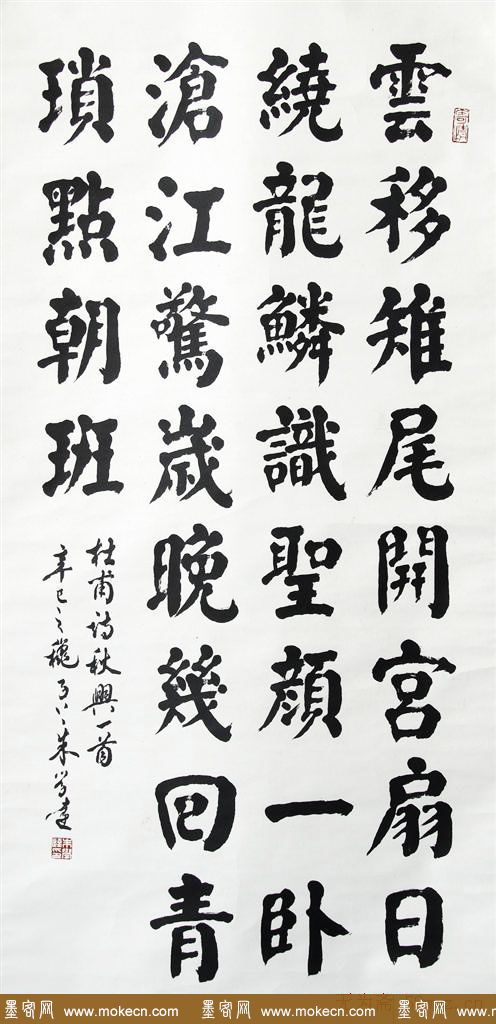 雲移雉尾開宮扇日
繞龍鱗識聖顔一卧
滄江驚歲晚幾回青
瑣點朝班
杜甫詩秋興一首
辛巳之穐
墨客网 www.mokecn.com 墨客网 www.mokecn.com 墨客网 www.mokecn.com